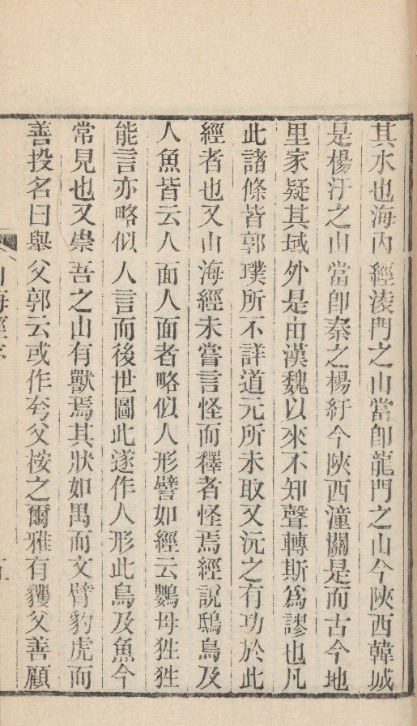 其水也海内經淩門之山當即龍門之山今陝西韓城
是楊汙之山當即秦之楊紆今陝西潼關是而古今地
里家疑其域外是由漢魏以來不知聲轉斯爲謬也凡
此諸條皆郭璞所不詳道元所未取又沅之有功於此
經者也又山海經未嘗言怪而釋者怪焉經說鴟鳥及
人魚皆云人面人面者略似人形譬如經云鸚母狌狌
能言亦略似人言而後世圖此遂作人形此鳥及魚今
常見也又崇吾之山有獸焉其狀如禺而文臂豹虎而
善投名曰舉父郭云或作夸父桉之爾雅有玃父善顧